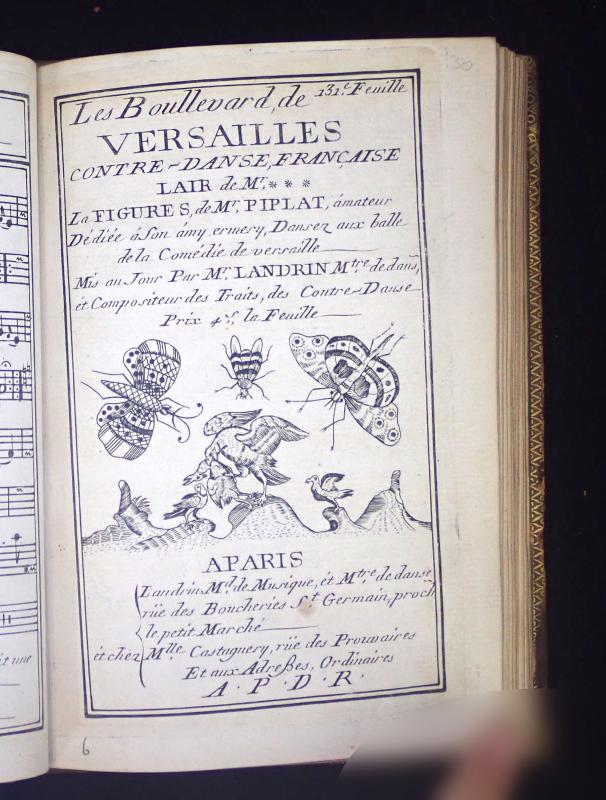 130
Les Boullevard, de 131.e Feuille
VERSAILLES
CONTRE-DANSE, FRANÇAISE
LAIR de Mr. ***
La FIGURES, de Mr. PIPLAT, ámateur
Dédiée à Son ámy ermery, Dansez aux balle
de la Comédie de versaille
Mis au Jour Par Mr. LANDRIN Mtre de dans,
ét Compositeur des Traits, des Contre-Danse
Prix 4 s. la Feuille
APARIS
Landrin Md. de Musique, ét Mtre de danse
rüe des Boucheries St. Germain, proch
le petit Marché
ét chez Mlle Castagnery, rüe des Prouvaires
Et aux Adreßes, Ordinaires
A. P. D. R.
6